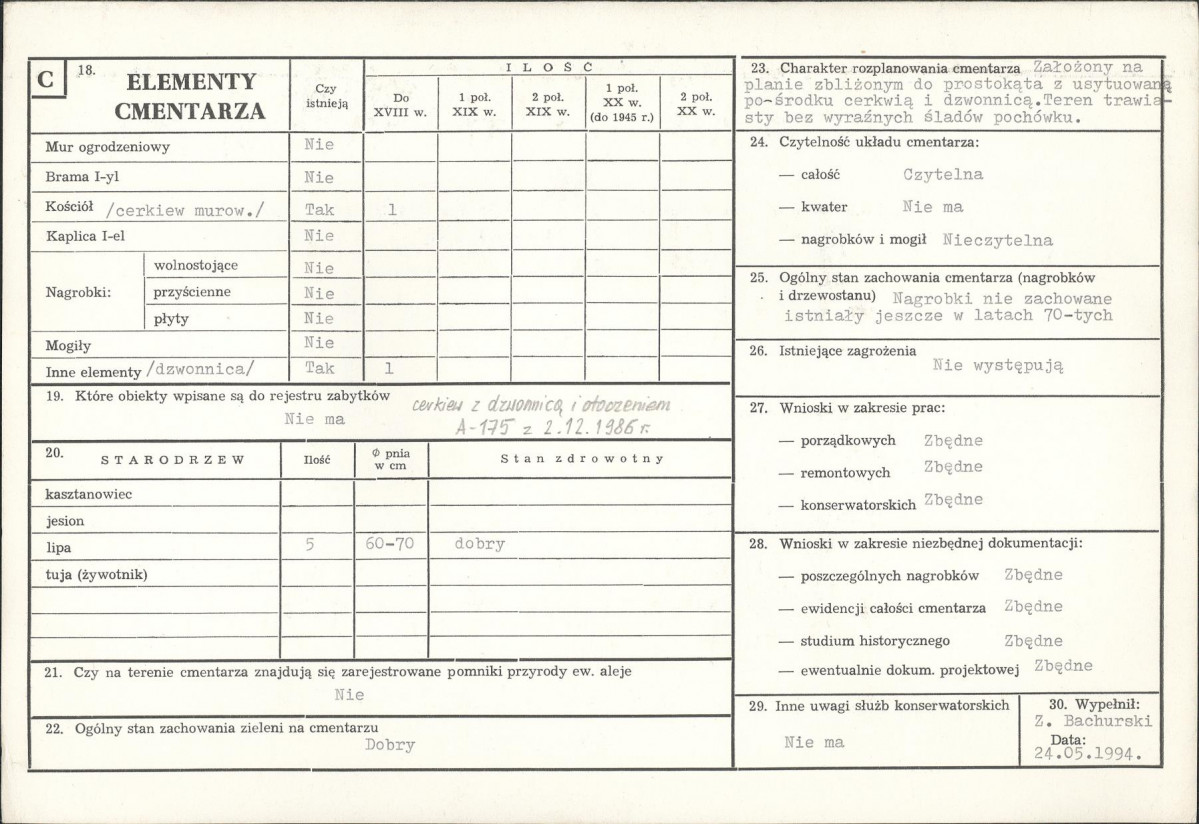 C 18. ELEMENTY
CMENTARZA
Czy
istnieją
ILOŚĆ
Do
XVIII w.
1 poł.
XIX w.
2 poł.
XIX w.
1 poł.
XX w.
(do 1945 r.)
2 poł.
XX w.
Mur ogrodzeniowy Nie
Brama I-yl Nie
Kościół /cerkiew murow./ Tak 1
Kaplica I-el Nie
Nagrobki:
wolnostojące Nie
przyścienne Nie
płyty Nie
Mogiły Nie
Inne elementy /dzwonnica/ Tak 1
19. Które obiekty wpisane są do rejestru zabytków
Nie ma
cerkiew z dzwonnicą i otoczeniem
A-175 z 2.12.1986 r.
20. STARODRZEW
Ilość
Ø pnia
w cm
Stan zdrowotny
kasztanowiec
jesion
lipa 5 60-70 dobry
tuja (żywotnik)
21. Czy na terenie cmentarza znajdują się zarejestrowane pomniki przyrody ew. aleje
Nie
22. Ogólny stan zachowania zieleni na cmentarzu
Dobry
23. Charakter rozplanowania cmentarza Założony na
planie zbliżonym do prostokąta z usytuowaną
po-środku cerkwią i dzwonnicą.Teren trawia-
sty bez wyraźnych śladów pochówku.
24. Czytelność układu cmentarza:
— całość Czytelna
— kwater Nie ma
— nagrobków i mogił Nieczytelna
25. Ogólny stan zachowania cmentarza (nagrobków
i drzewostanu) Nagrobki nie zachowane
istniały jeszcze w latach 70-tych
26. Istniejące zagrożenia
Nie występują
27. Wnioski w zakresie prac:
— porządkowych Zbędne
— remontowych Zbędne
— konserwatorskich Zbędne
28. Wnioski w zakresie niezbędnej dokumentacji:
— poszczególnych nagrobków Zbędne
— ewidencji całości cmentarza Zbędne
— studium historycznego Zbędne
— ewentualnie dokum. projektowej Zbędne
29. Inne uwagi służb konserwatorskich
Nie ma
30. Wypełnił:
Z. Bachurski
Data:
24.05.1994.